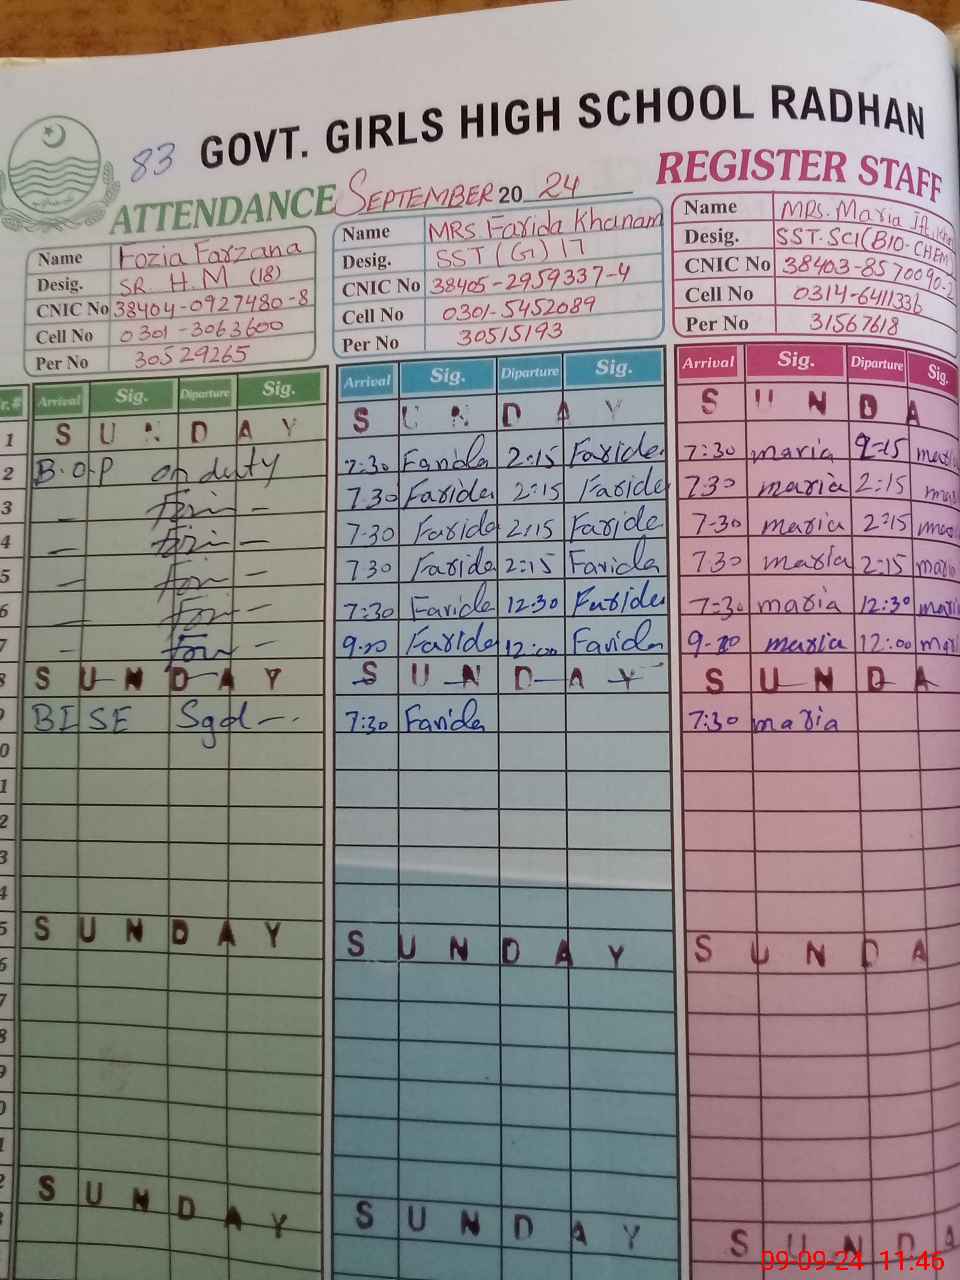 83 GOVT. GIRLS HIGH SCHOOL RADHAN
ATTENDANCE SEPTEMBER 2024 REGISTER STAFF
Name Fozia Farzana
Desig. SR. H.M (18)
CNIC No 38404-0927480-8
Cell No 0301-3063600
Per No 30529265
Name MRS. Farida Khanam
Desig. SST (G) 17
CNIC No 38405-2959337-4
Cell No 0301-5452089
Per No 30515193
Name MRS. Maria
Desig. SST-SCI (BIO-CHEM
CNIC No 38403-8570090-2
Cell No 0314-6411336
Per No 31567618
r.# Arrival Sig. Diparture Sig. Arrival Sig. Diparture Sig. Arrival Sig. Diparture Sig.
1 S U N D A Y S U N D A Y S U N D A
2 B.O.P on duty 7:30 Farida 2:15 Farida 7:30 maria 2:15 maria
3 7.30 Farida 2:15 Farida 7.30 maria 2:15
4 7-30 Farida 2:15 Farida 7-30 maria 2:15
5 7.30 Farida 2:15 Farida 7.30 maria 2:15
6 7:30 Farida 12:30 Farida 7:30 maria 12:30
7 9.20 Farida 12:00 Farida 9-20 maria 12:00
8 S U N D A Y S U N D A Y S U N D A
9 BISE Sgd 7:30 Farida 7:30 maria
0
1
2
3
4
5 S U N D A Y S U N D A Y S U N D A
6
7
8
9
0
1
2 S U N D A Y S U N D A Y S U N D A
3
09-09-24 11:46